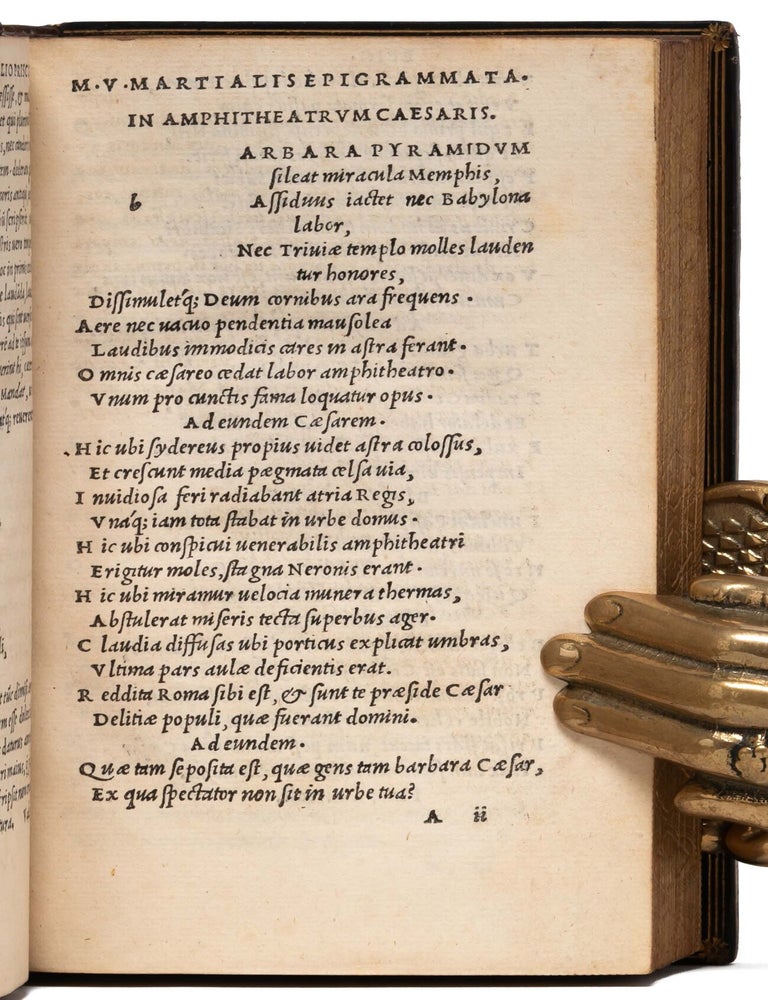 M·V·MARTIALIS EPIGRAMMATA·
IN AMPHITHEATRVM CAESARIS.
b
ARBARA PYRAMIDVM
sileat miracula Memphis,
Assiduus iactet nec Babylona
labor,
Nec Triuiæ templo molles lauden
tur honores,
Dissimulet'q; Deum cornibus ara frequens·
Aere nec uacuo pendentia mausolea
Laudibus immodicis cares in astra ferant·
O mnis cæsareo cedat labor amphitheatro·
V num pro cunctis fama loquatur opus·
Ad eundem Cæsarem·
H ic ubi sydereus propius uidet astra colossus,
Et crescunt media pægmata celsa uia,
I nuidiosa feri radiabant atria Regis,
V na'q; iam tota stabat in urbe domus·
H ic ubi conspicui uenerabilis amphitheatri
Erigitur moles, stagna Neronis erant·
H ic ubi miramur uelocia munera thermas,
Abstulerat miseris tecta superbus ager·
C laudia diffusas ubi porticus explicat umbras,
V ltima pars aulæ deficientis erat.
R eddita Roma sibi est, & sunt te præside Cæsar
Delitiæ populi, quæ fuerant domini·
Ad eundem·
Quæ tam seposita est, quæ gens tam barbara Cæsar,
Ex qua spectator non sit in urbe tua?
A ii